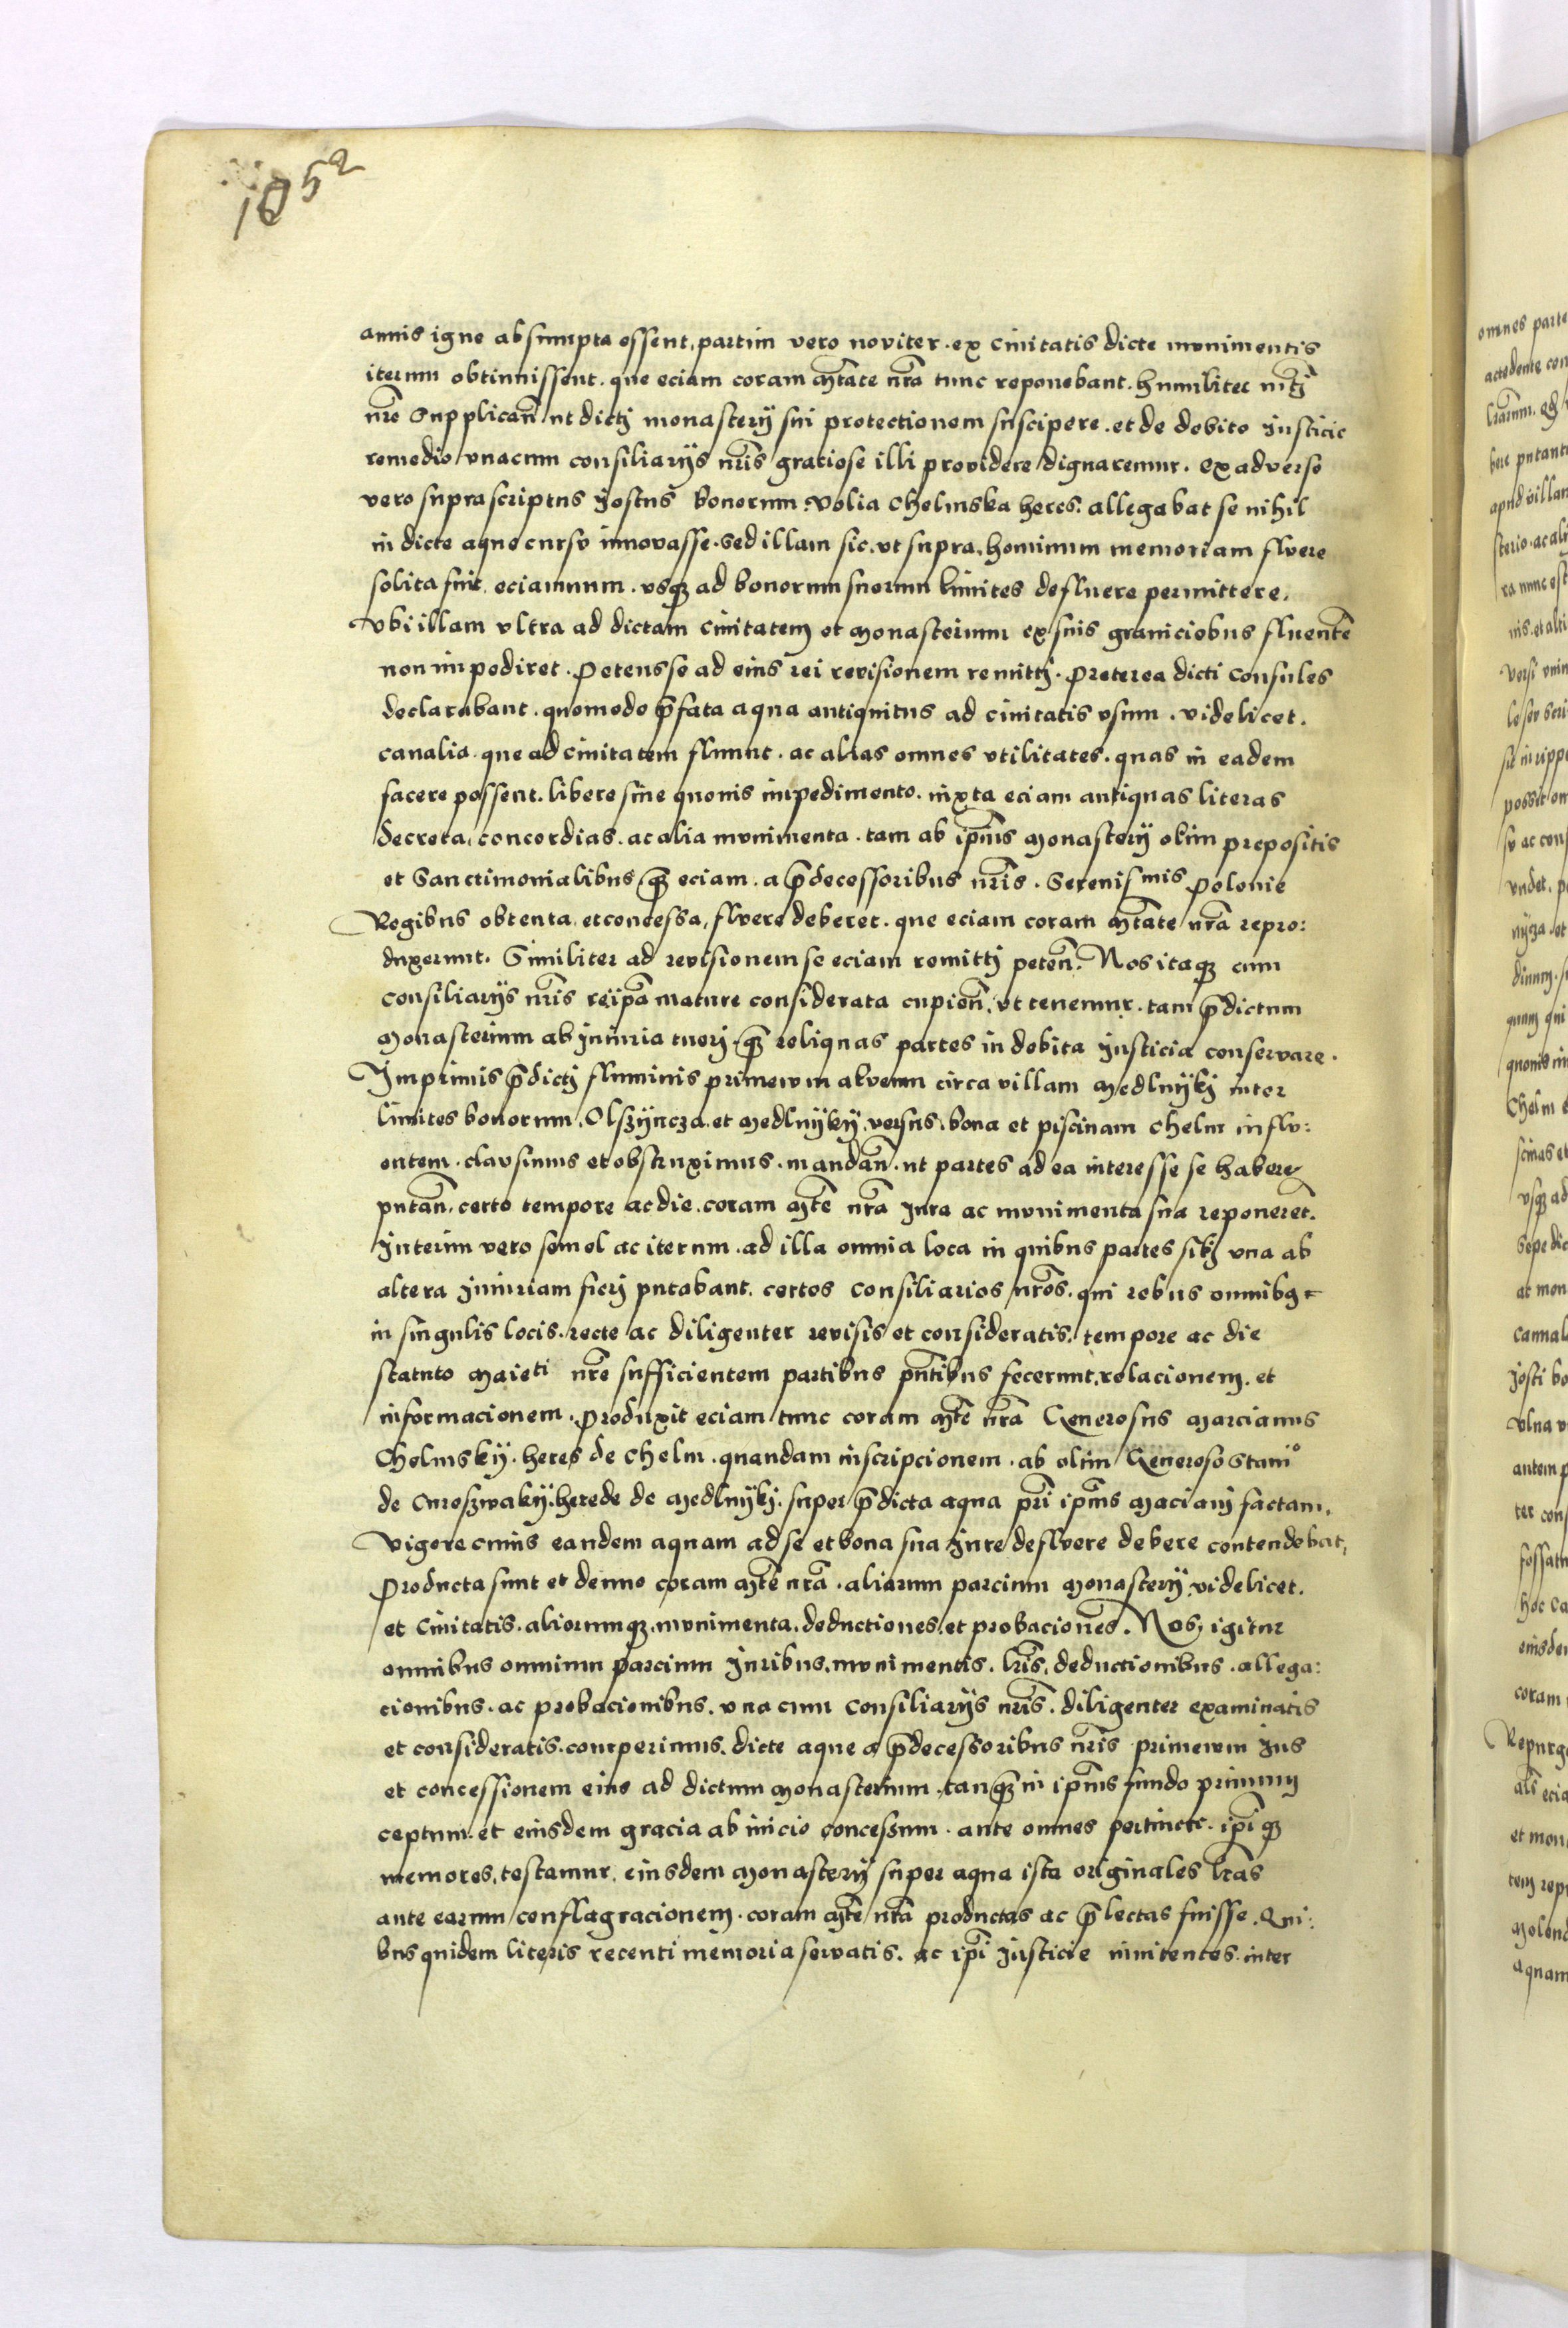 1052
annis igne absumpta essent, partim vero noviter. ex civitatis dicte monimentis
iterum obtinuissent. que eciam coram M̃tate nr̃a tunc reponebant. humiliter M̃tj
nr̃e Supplicañ ut dictj monasterij sui protectionem suscipere. et de debito Justicie
remedio vnacum consiliarijs nr̃is gratiose illi providere dignaremur. Ex adverso
vero suprascriptus Jostus bonorum Volia Chelmska heres. allegabat se nihil
in dicte aque cursv innovasse. Sed illam sic. vt supra. hominum memoriam flvere
solita fuit. eciamnum. vsqꝫ ad bonorum suorum limites defluere permittere.
Vbi illam vltra ad dictam civitatem et Monasterium ex suis graniciebus fluentẽ
non impediret. Petens se ad eius rei revisionem remittj. Preterea dicti Consules
declarabant. quomodo p̃fata aqua antiquitus ad civitatis vsum. videlicet.
canalia. que ad civitatem fluunt. ac alias omnes vtilitates. quas in eadem
facere possent. libere sine quovis impedimento. iuxta eciam antiquas literas
decreta, concordias. ac alia monimenta. tam ab ip̃ius Monasterij olim prepositis
et Sanctimonialibus qꝫ̃ eciam. a p̃decessoribus nr̃is. Serenismis Polonie
Regibus obtenta. et concessa, flvere deberet. que eciam coram M̃tate nr̃a repro:
duxerunt. Similiter ad revisionem se eciam remittj peteñ. Nos itaqꝫ cum
consiliarijs nr̃is re ip̃a mature considerata cupieñ. vt tenemur. tam p̃dictum
Monasterium ab Iniuria tuerj. qꝫ̃ reliquas partes in debita Justicia conservare.
Imprimis p̃dictj fluminis primevm alveum circa villam Medlnijkj inter
limites bonorum. Olszyncza. et Medlnijkÿ. versus. bona et piscinam Chelm influ:
entem. clavsimus et obstruximus. mandañ. ut partes ad ea interesse se habere
putañ. certo tempore ac die. coram M̃te nr̃a Jura ac monimenta sua reponereñt.
Interim vero semel ac iterum. ad illa omnia loca in quibus partes sibj vna ab
altera Iniuriam fierj putabant. certos consiliarios nr̃os. qui rebus omnibꝫ
in singulis locis. recte ac diligenter revisis et consideratis. tempore ac die
statuto Maieti nr̃e sufficientem partibus pñtibus fecerunt. relacionem. et
informacionem. Produxit eciam tunc coram M̃te nr̃a Generosus Marcianus
Chelmskÿ. heres de Chelm. quandam inscripcionem. ab olim Generoso Stanio
de Curoszwakÿ. herede de Medlnijkj. super p̃dicta aqua pr̃i ip̃ius Maciani factam.
Vigore cuius eandem aquam ad se et bona sua Jure deflvere debere contendebat,
Producta sunt et denuo coram M̃te nr̃a. aliarum parcium Monasterij videlicet.
et Civitatis. aliorumqꝫ. monimenta. deductiones. et probacionẽs. Nos, igitur
omnibus omnium parcium Juribus. monimentis. lr̃is. deductionibus. allega:
cionibus. ac probacionibus. vna cum Consiliarijs nr̃is. diligenter examinatis
et consideratis. comperimus. dicte aque a p̃decessoribus nr̃is primevm Jus
et concessionem eius ad dictum Monasterium. tanqꝫ̃ in ip̃ius fundo primum
ceptum. et eiusdem gracia ab inicio concessum. ante omnes pertinere. ip̃iqꝫ
memores. testamur. eiusdem Monasterij super aqua ista originales lr̃as
ante earum conflagracionem. coram M̃te nr̃a productas ac p̃lectas fuisse. Qui:
bus quidem literis recenti memoria servatis. ac ip̃i Justicie innitentes. inter